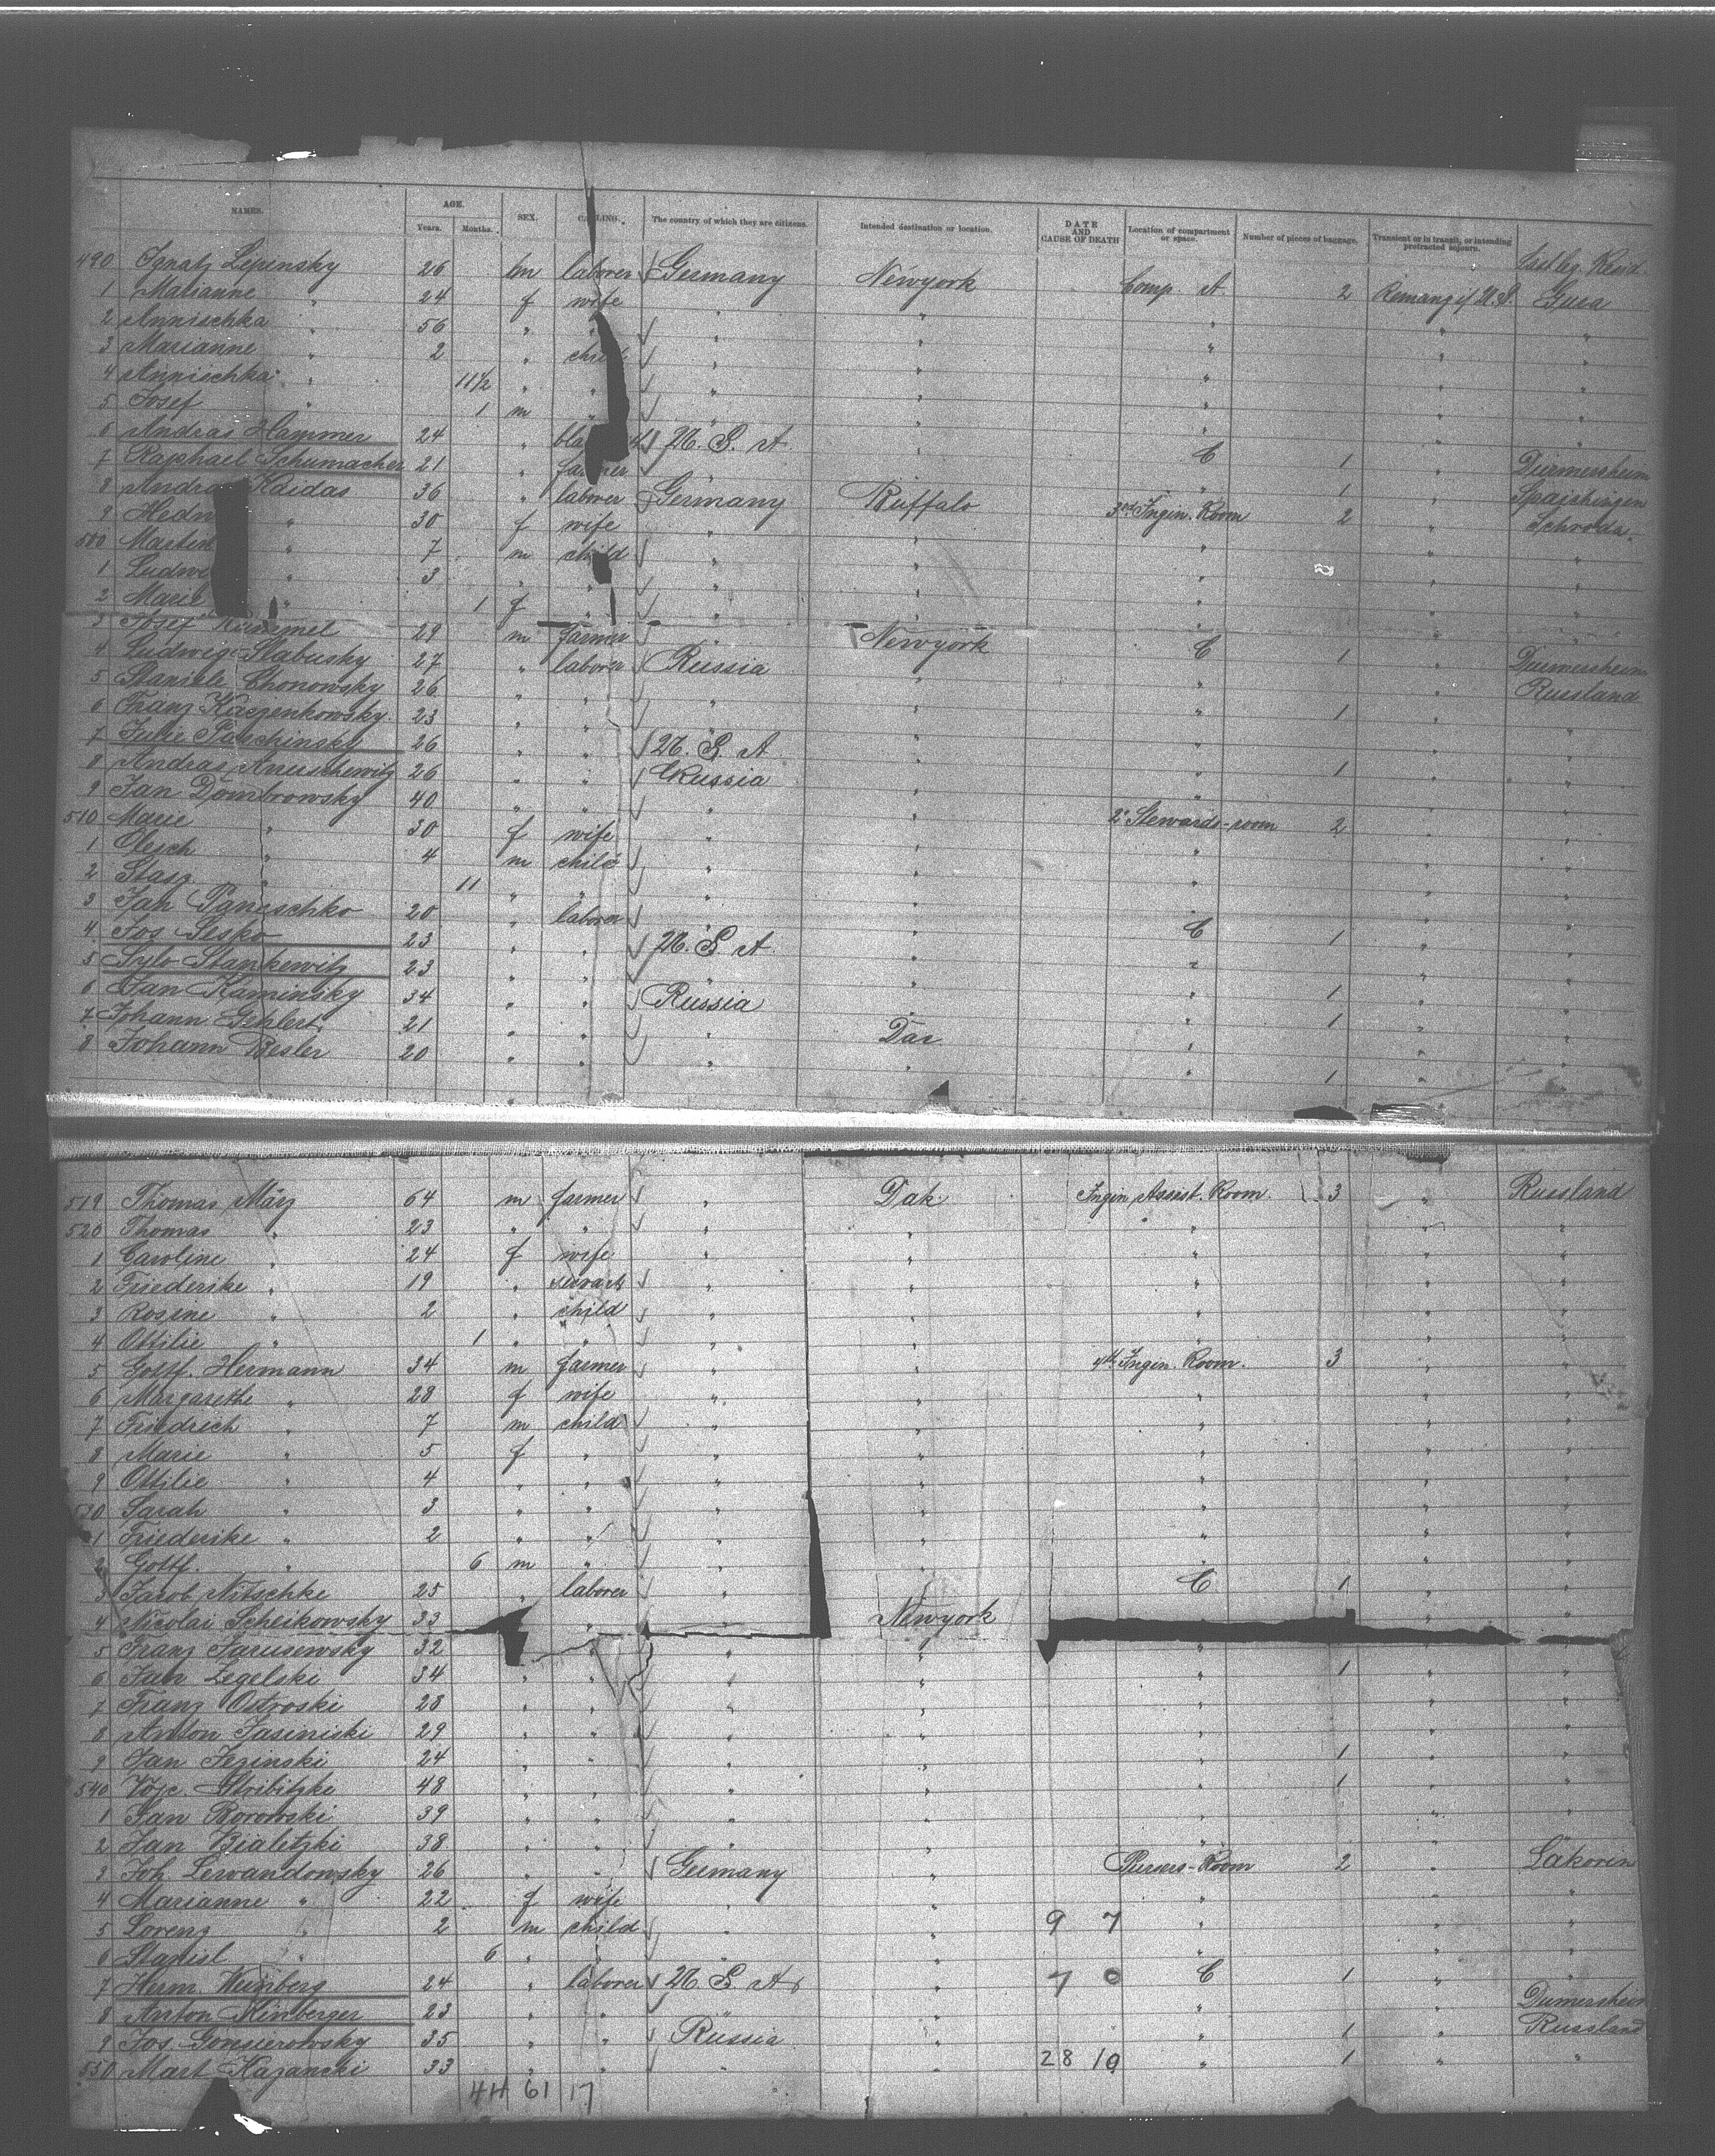 NAMES. AGE. SEX. CALLING. The country of which they are citizens. Intended destination or location. DATE AND CAUSE OF DEATH Location of compartment or space. Number of pieces of baggage. Transient or in transit, or intending protracted sojourn.
Years. Months.
490 Ignatz Lepensky 26 m laborer Germany Newyork Comp. A. 2
1 Marianne " 24 f wife " "
2 Annischka " 56 " " " "
3 Marianne " 2 " child " "
4 Annischka " 11½ " " " "
5 Josef " 1 m " " "
6 Andras Hammer 24 " U. S. A. " C 1
7 Raphael Schumacher 21 " farmer " " " 1
8 Andras Kaidas 36 " laborer Germany Buffalo 3rd Ingin. Room 2 " Schroda
9 Hedw " 30 f wife " " "
500 Martin " 7 m child " " "
1 Ludw " 3 " " " " "
2 Marie " 1 f " " " "
3 Josef 29 m farmer " Newyork C 1
4 Ludwig Slabusky 27 " laborer Russia " " " Russland
5 Chonowsky 26 " " " " " 1
6 Franz Kaczenkowsky 23 " " " " "
7 26 " " U. S. A. " " 1
8 Andras Anuschewitz 26 " " Russia " "
9 Jan Dombrowsky 40 " " " " 2d Stewards-room 2
510 Marie " 30 f wife " " "
1 Olesch " 4 m child " " "
2 Stasz " 11 " " " " "
3 Jan Panuschko 20 " laborer " " C 1
4 Jos Sesko 23 " " U. S. A. " "
5 Stankewitz 23 " " " " " 1
6 Jan Kaminsky 34 " " Russia " " 1
7 Johann Gehlert 21 " " " Dak "
8 Johann Besler 20 " " " " " 1
519 Thomas März 64 m farmer " Dak Ingin. Assist. Room 3 " Russland
520 Thomas " 23 " " " " " " "
1 Caroline " 24 f wife " " " " "
2 Friederike " 19 " servant " " " " "
3 Rosine " 2 " child " " " " "
4 Ottilie " 1 " " " " " " "
5 Gottf. Hermann 34 m farmer " " 4th Ingin. Room. 3 " "
6 Margarethe " 28 f wife " " " " "
7 Friedrich " 7 m child " " " " "
8 Marie " 5 f " " " " " "
9 Ottilie " 4 " " " " " " "
530 Sarah " 3 " " " " " " "
1 Friederike " 2 " " " " " " "
2 Gottf. " 6 m " " " " " "
3 Jacob Nitschke 25 " laborer " " C 1 " "
4 Nicolai Scheikowsky 33 " " Newyork " "
5 Franz Jarusewsky 32 " " " " " "
6 Jan Zegelski 34 " " " " " 1 " "
7 Franz Ostroski 28 " " " " " " "
8 Anton Jasiniski 29 " " " " " " "
9 Jan Jezinski 24 " " " " " 1 " "
540 Vojc. Skribitzki 48 " " " " " 1 " "
1 Jan Borowski 39 " " " " " " "
2 Jan Bialetzki 38 " " " " " " "
3 Joh. Lewandowsky 26 " " Germany " Pursers-Room 2 " Lakorin
4 Marianne " 22 f wife " " " " "
5 Lorenz " 2 m child " " 9 7 " " "
6 Stanisl " 6 " " " " " " "
7 Herm. Weinberg 24 " laborer U. S. A. " 7 0 C 1 " "
8 Anton Kinberger 23 " " " " " "
9 Jos. Gonsierowsky 35 " " Russia " " 1 " Russland
550 Mart Kazancki 33 " " " " 28 10 " 1 " "
44 61 17